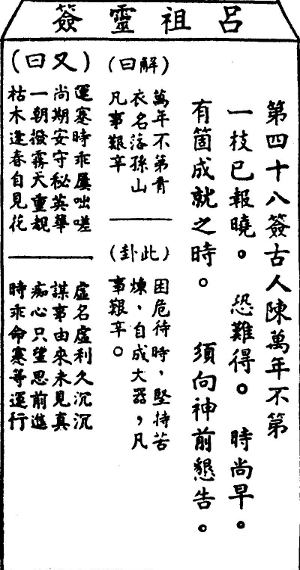 呂祖靈簽
第四十八簽古人陳萬年不第
一枝已報曉。恐難得。時尚早。
有箇成就之時。須向神前懇告。
(解曰)
萬年不第青
衣名落孫山
凡事艱辛
(此卦)
困危待時，堅持苦
煉，自成大器，凡
事艱辛。
(又曰)
運蹇時乖屢咄嗟
尚期安守秘英華
一朝撥霧天重覩
枯木逢春自見花
虛名虛利久沉沉
謀事由來未見真
痴心只望思前進
時乖命蹇等運行